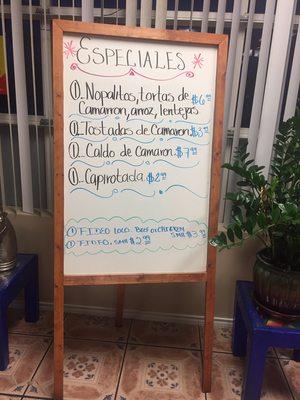 ESPECIALES
① Nopalitos, tortas de $6
Camaron, arroz, lentejas
① Tostadas de Camaron $3
① Caldo de Camaron $7
① Capirotada $2
① FIDEO LOCO BEEF OR CHICKEN
SMR $3.99
① FIDEO, SMR $2.99